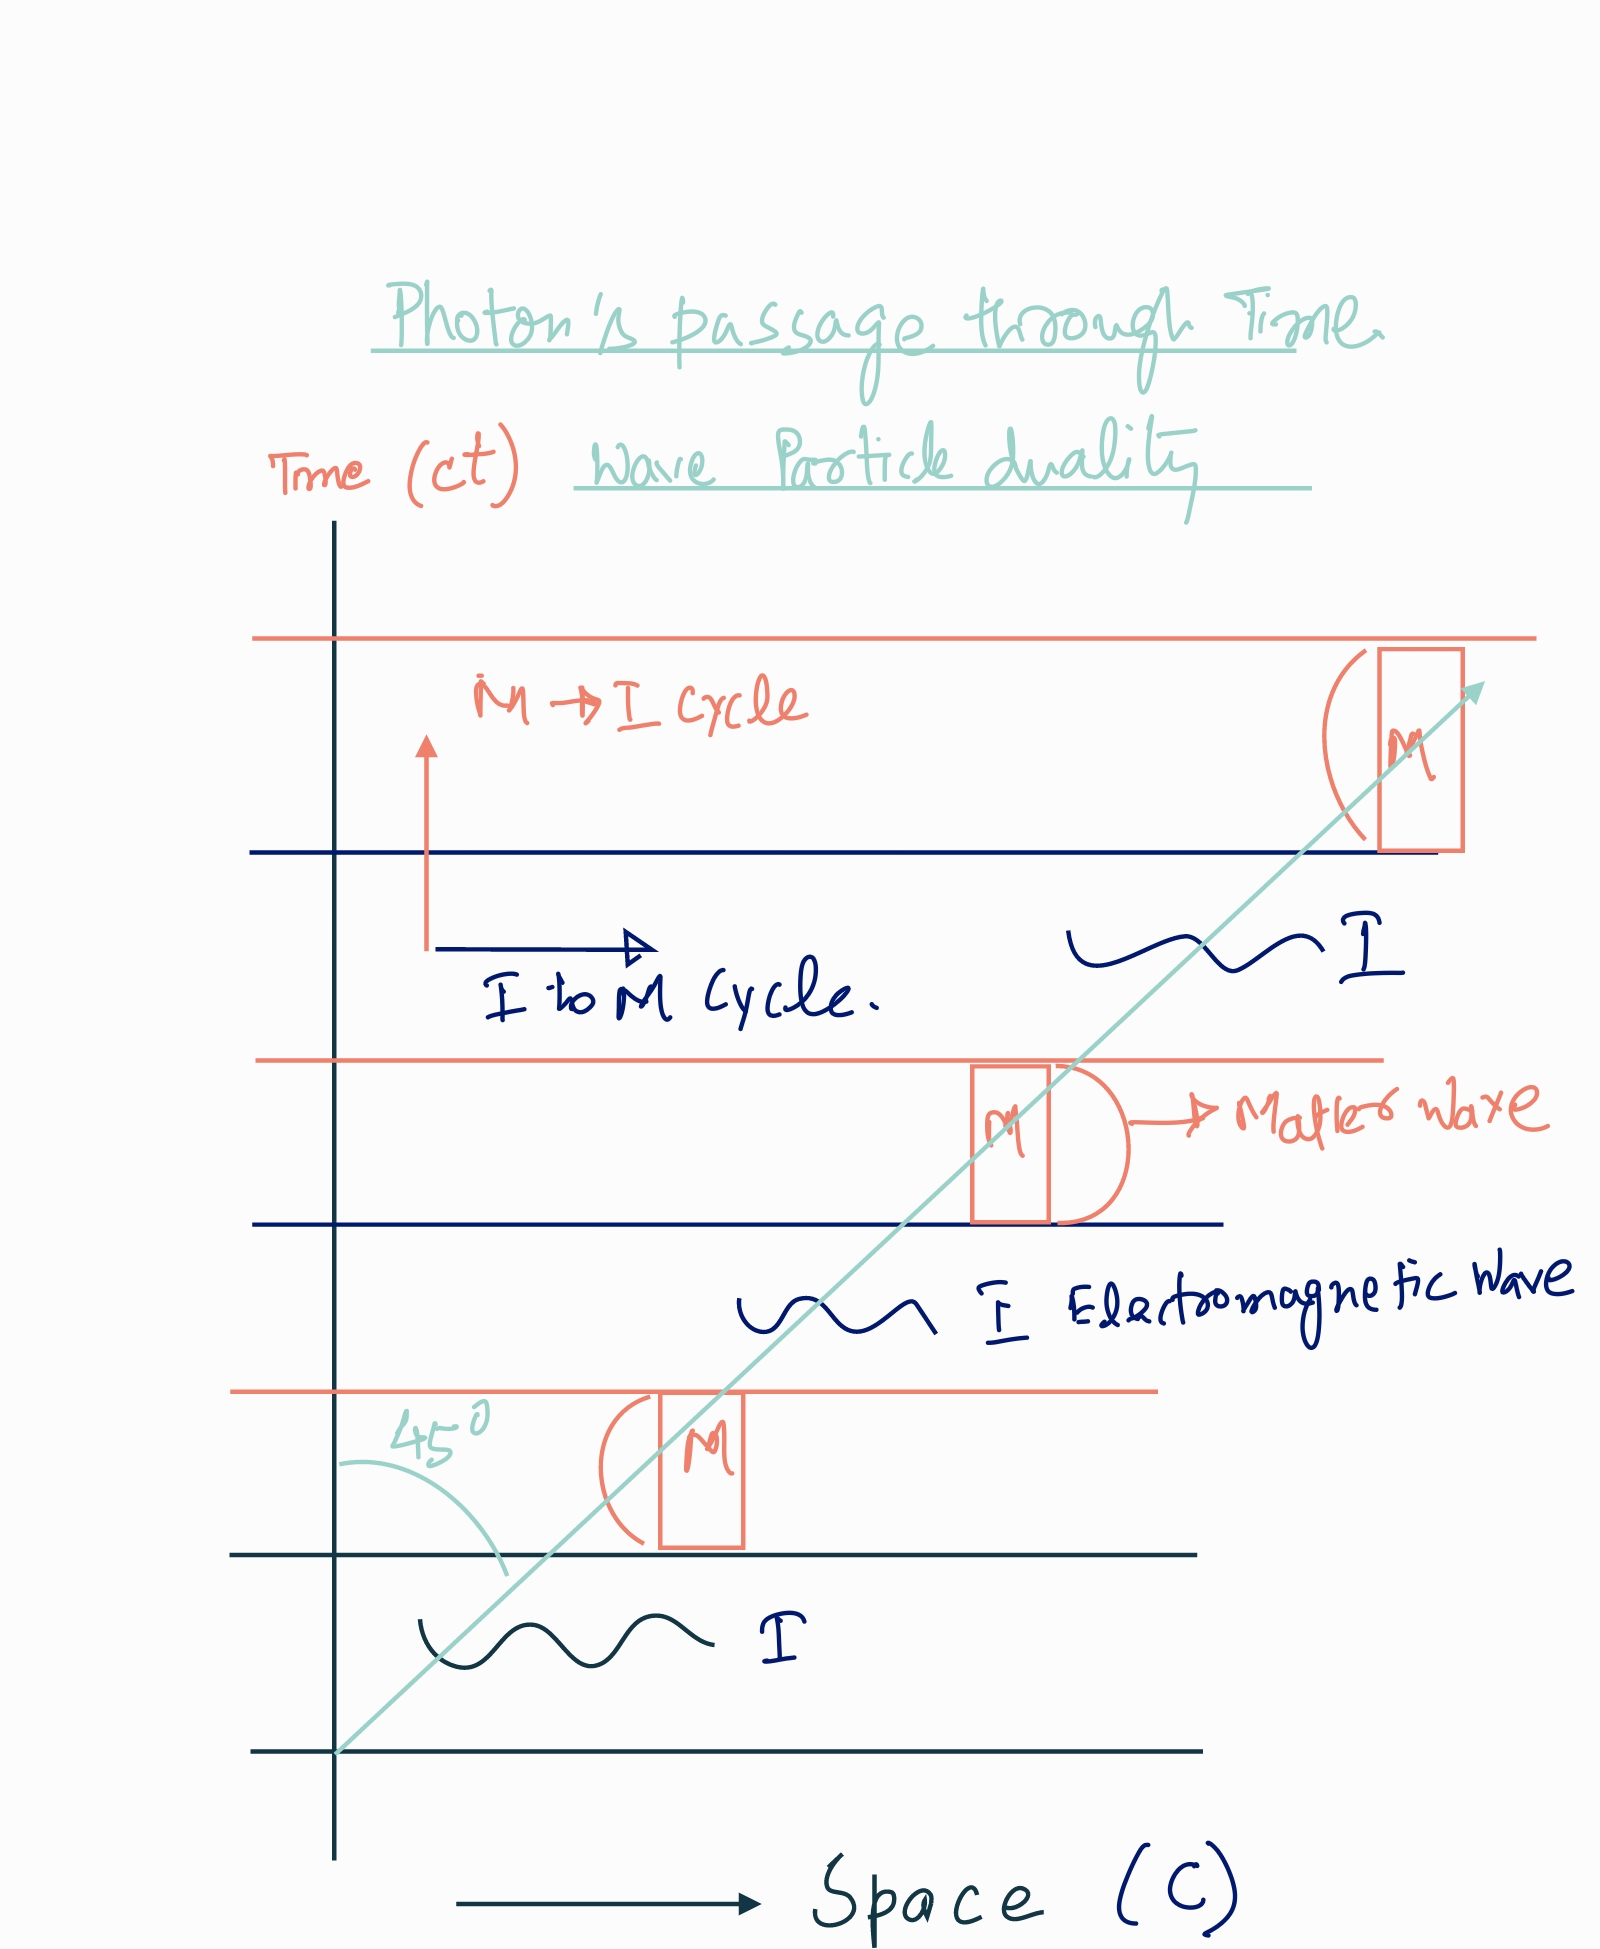 Photon's passage through Time.
Wave Particle duality
Time (ct)
M → I Cycle
M
I
I to M Cycle.
M
Matter wave
I Electromagnetic Wave
45°
M
I
Space (C)